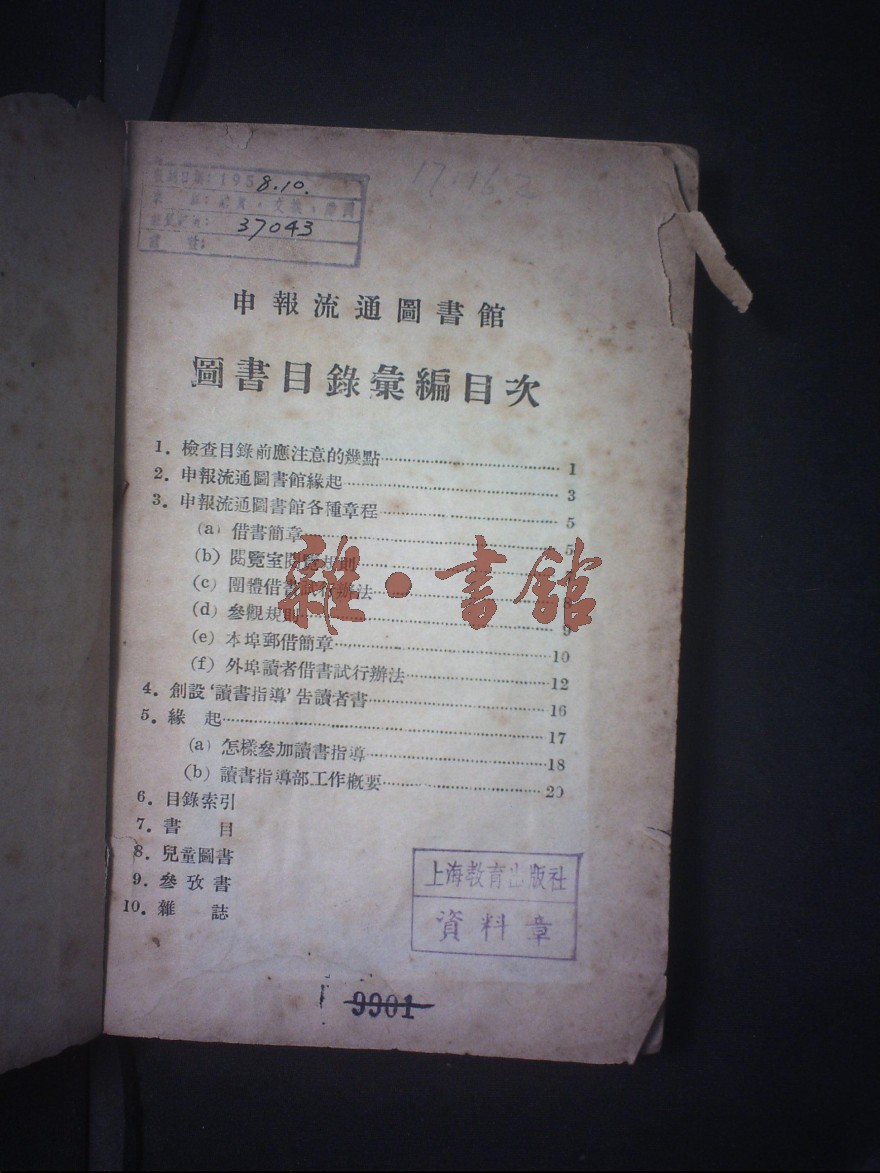 17.16 2
195 8.10.
37043
申報流通圖書館
圖書目錄彙編目次
1. 檢查目錄前應注意的幾點 1
2. 申報流通圖書館緣起 3
3. 申報流通圖書館各種章程 5
(a) 借書簡章 5
(b) 閱覽室閱覽規則
(c) 團體借書試行辦法 8
(d) 參觀規則 9
(e) 本埠郵借簡章 10
(f) 外埠讀者借書試行辦法 12
4. 創設‘讀書指導’告讀者書 16
5. 緣 起 17
(a) 怎樣參加讀書指導 18
(b) 讀書指導部工作概要 20
6. 目錄索引
7. 書 目
8. 兒童圖書
9. 參攷書
10. 雜 誌
雜·書館
上海教育出版社
資料章
9901